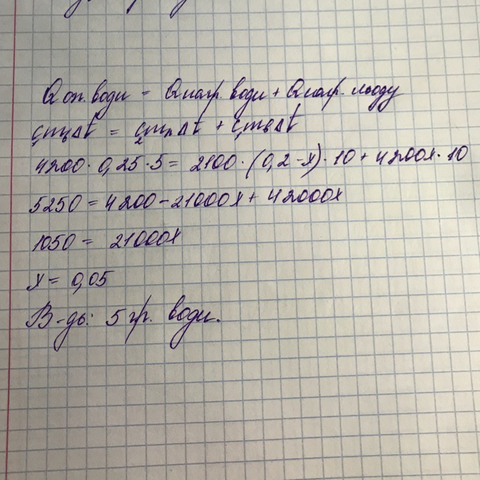 Q ох. води = Q нагр. води + Q нагр. льоду
c₁m₁Δt = c₂m₂Δt + c₁m₃Δt
4200 · 0,25 · 5 = 2100 · (0,2 - x) · 10 + 4200x · 10
5250 = 4200 - 21000x + 42000x
1050 = 21000x
x = 0,05
В-дь: 5 гр. води.